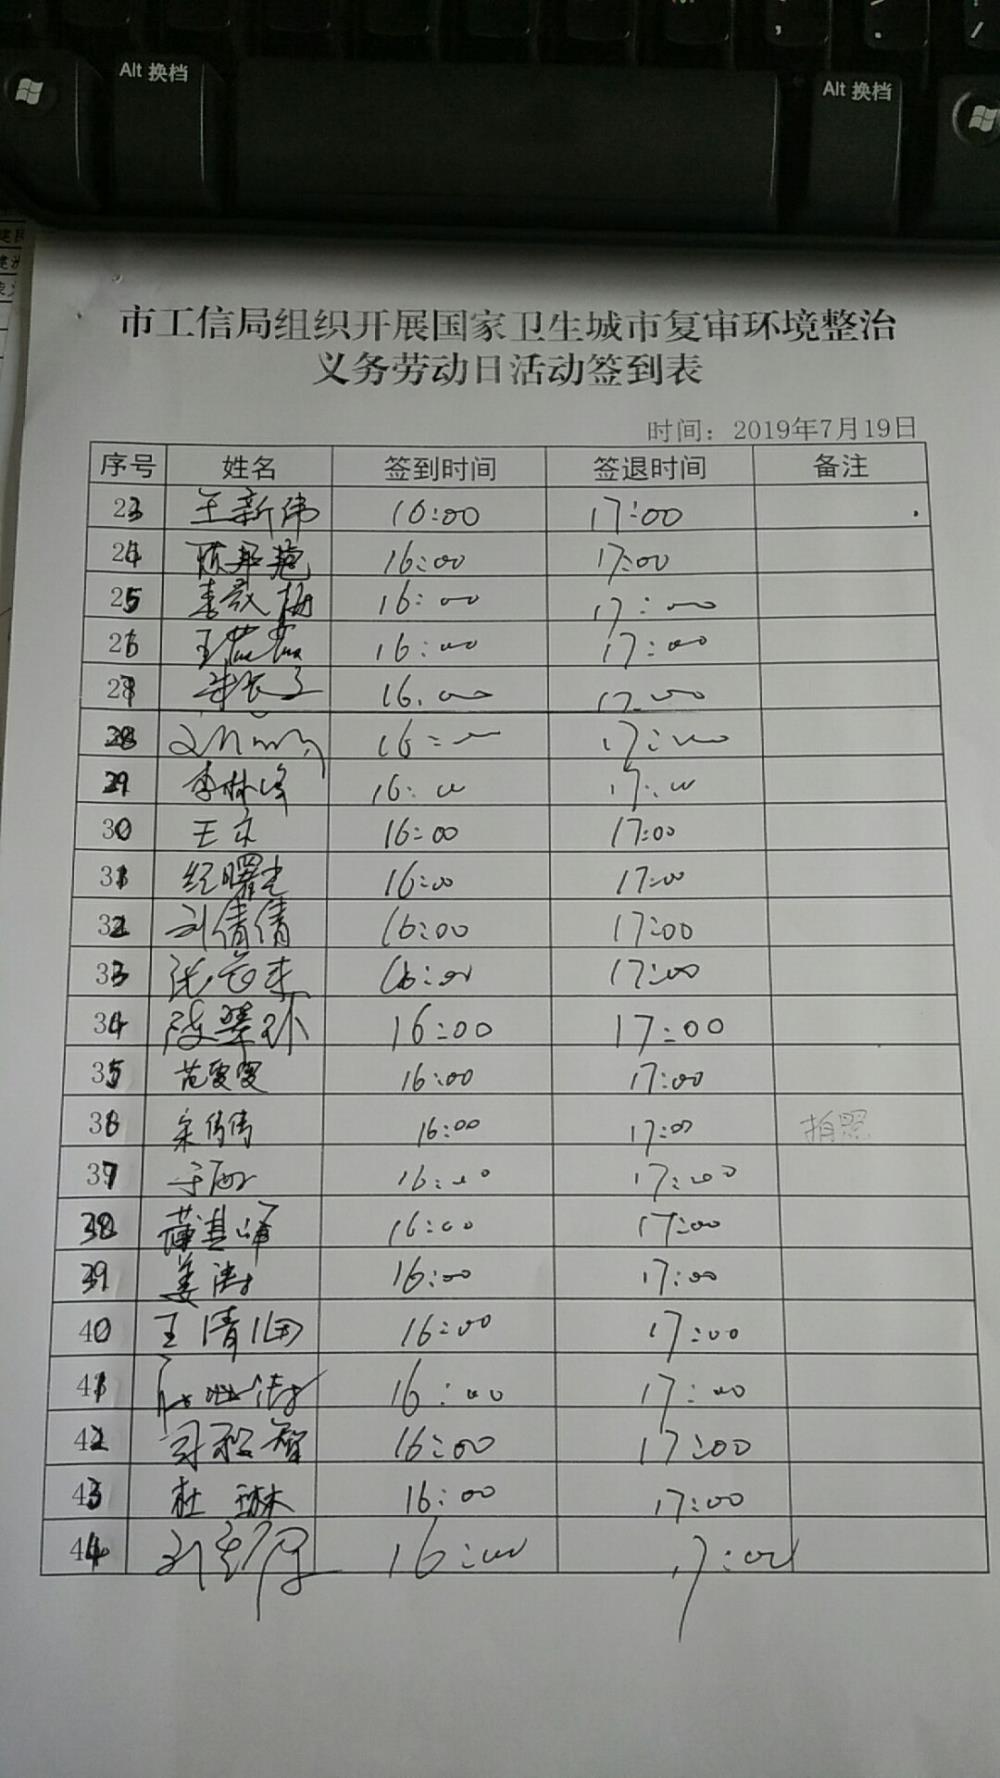 Alt 换档
Alt 换档
市工信局组织开展国家卫生城市复审环境整治
义务劳动日活动签到表
时间：2019年7月19日
序号 姓名 签到时间 签退时间 备注
23 王新伟 16:00 17:00
24 16:00 17:00
25 李敬梅 16:00 17:00
26 王 16:00 17:00
27 16:00 17:00
28 16:00 17:00
29 李林峰 16:00 17:00
30 王京 16:00 17:00
31 纪曙光 16:00 17:00
32 刘倩倩 16:00 17:00
33 张 16:00 17:00
34 16:00 17:00
35 范雯雯 16:00 17:00
36 宋倩倩 16:00 17:00 拍照
37 于 16:00 17:00
38 16:00 17:00
39 姜涛 16:00 17:00
40 王清国 16:00 17:00
41 16:00 17:00
42 智 16:00 17:00
43 杜琳 16:00 17:00
44 刘 16:00 17:00